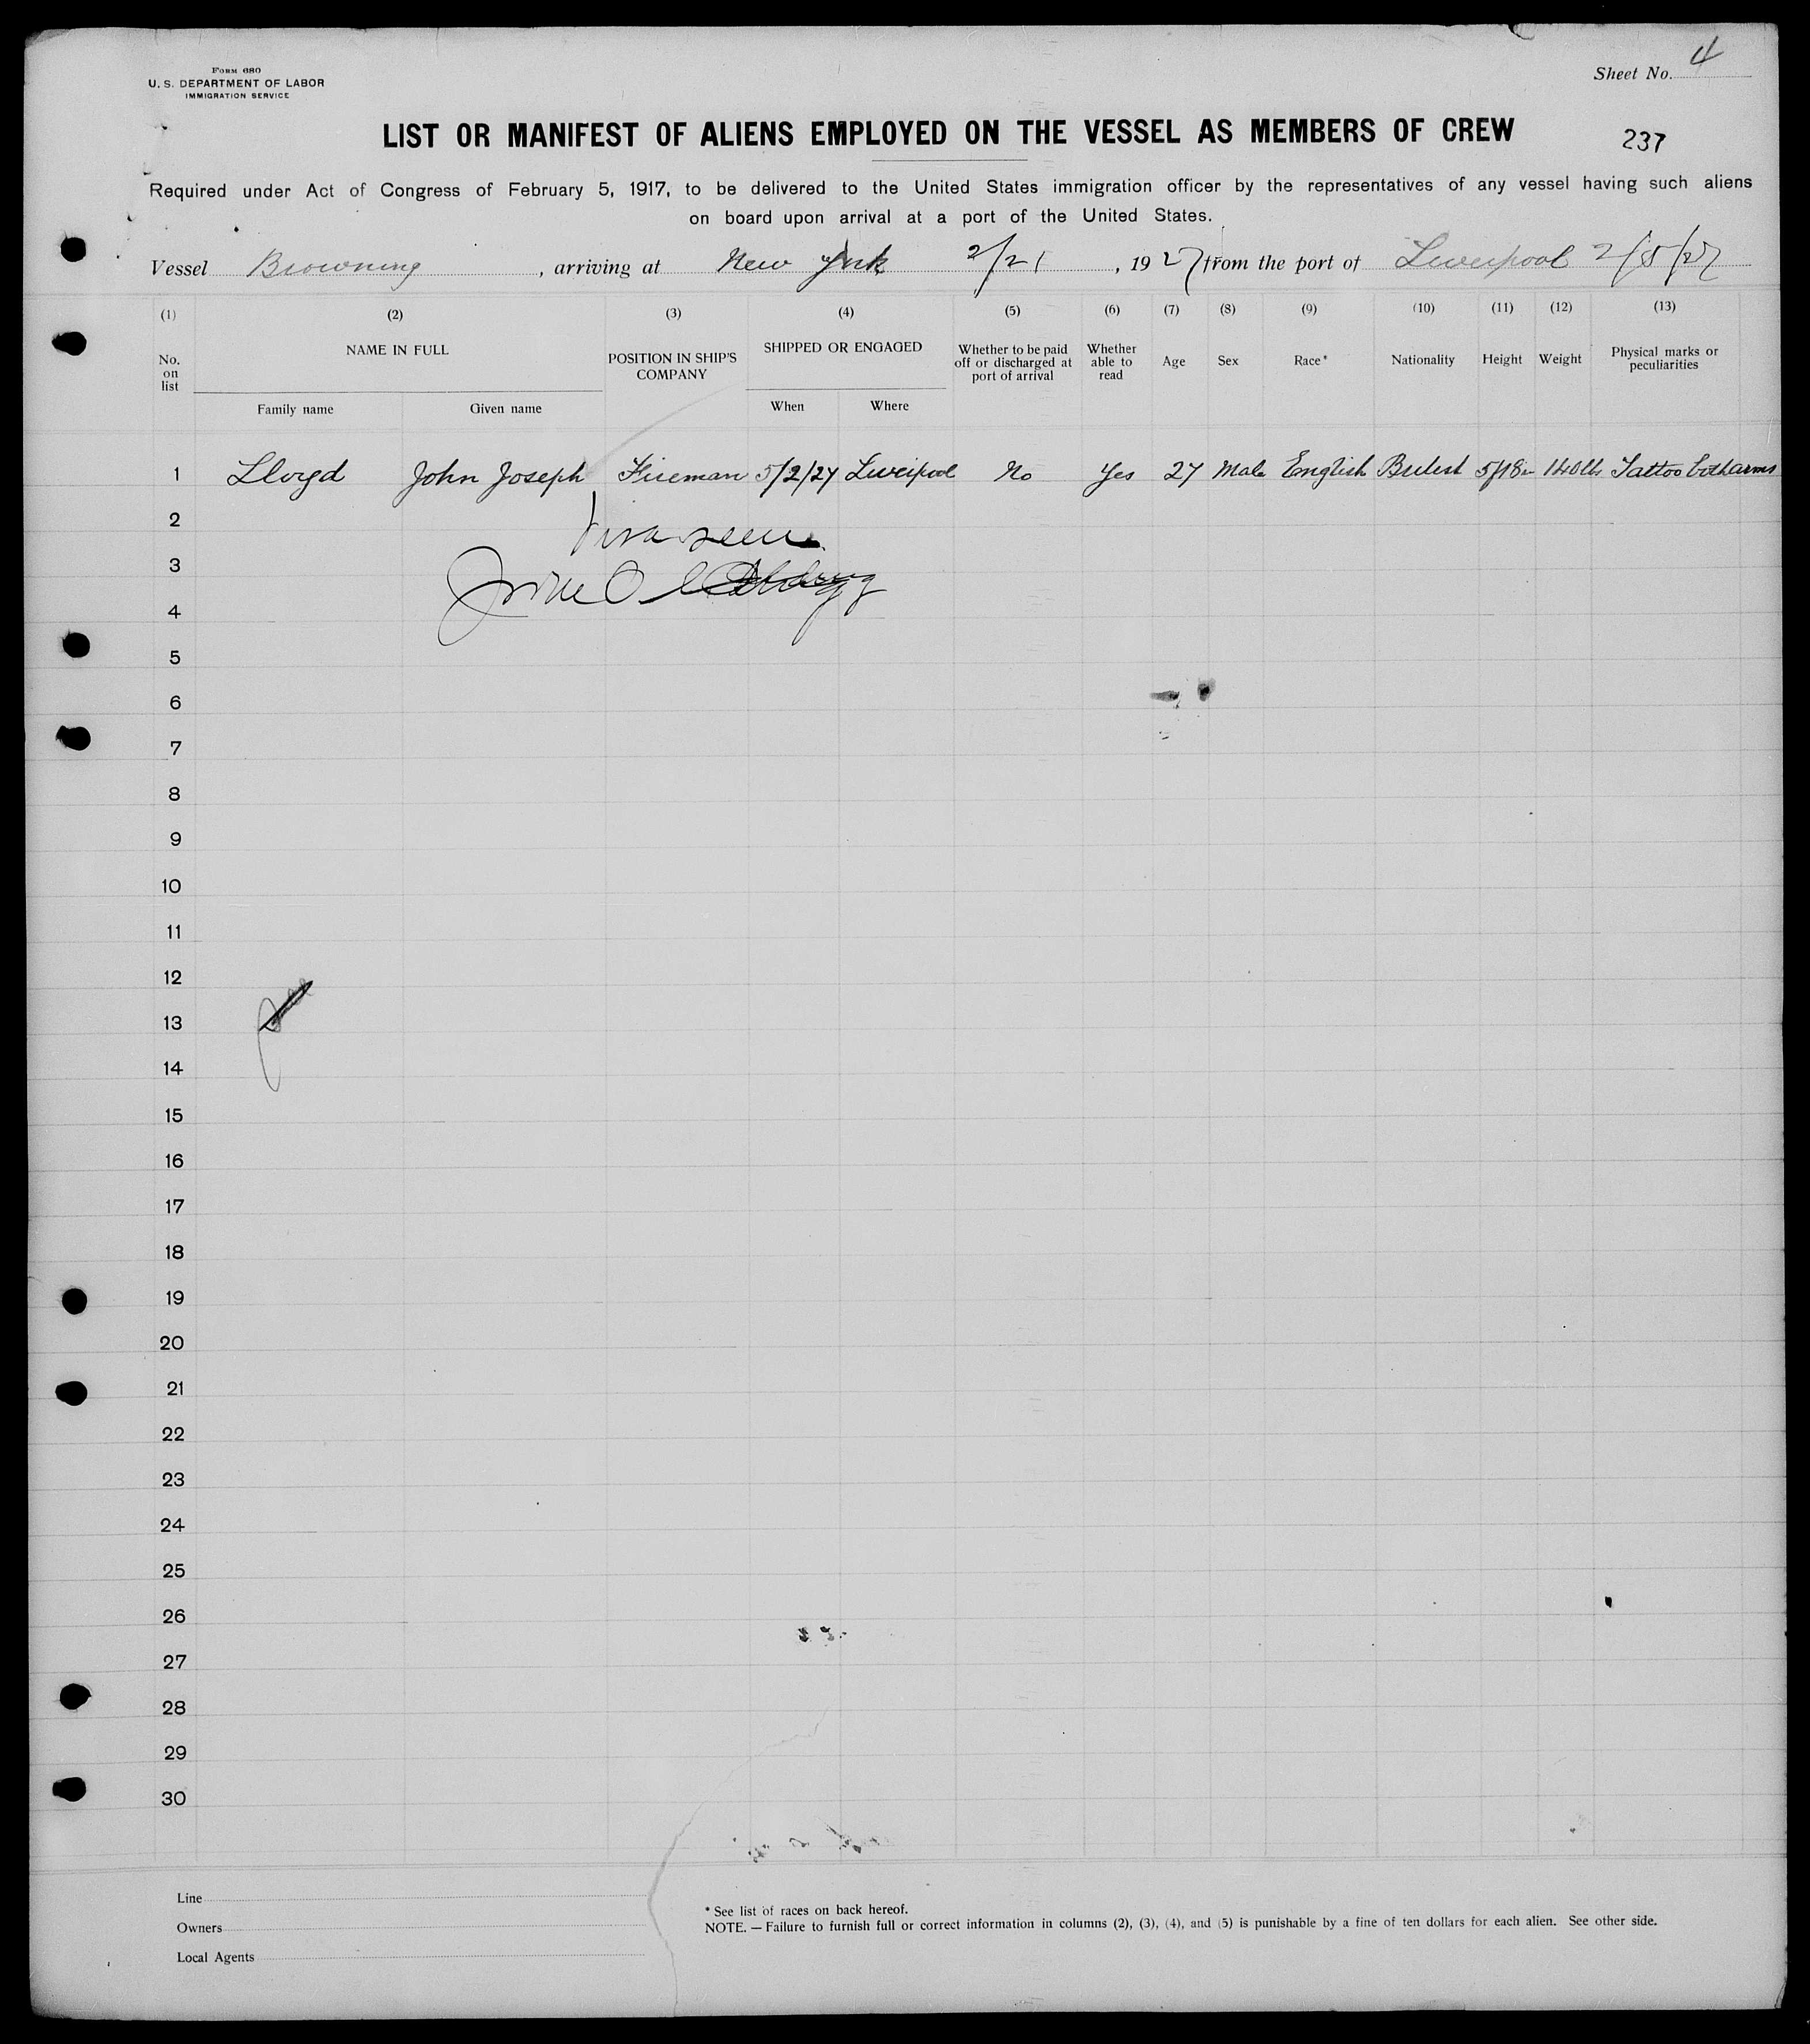 Form 680
U. S. DEPARTMENT OF LABOR
IMMIGRATION SERVICE
Sheet No. 4
LIST OR MANIFEST OF ALIENS EMPLOYED ON THE VESSEL AS MEMBERS OF CREW
237
Required under Act of Congress of February 5, 1917, to be delivered to the United States immigration officer by the representatives of any vessel having such aliens
on board upon arrival at a port of the United States.
Vessel Browning, arriving at New York 2/21, 1927, from the port of Liverpool 2/5/27
(1) (2) (3) (4) (5) (6) (7) (8) (9) (10) (11) (12) (13)
No. on list NAME IN FULL POSITION IN SHIP'S COMPANY SHIPPED OR ENGAGED Whether to be paid off or discharged at port of arrival Whether able to read Age Sex Race* Nationality Height Weight Physical marks or peculiarities
Family name Given name When Where
1 Lloyd John Joseph Fireman 5/2/27 Liverpool No Yes 27 Male English British 140 lbs Tattoo both arms
2
Visa seen
3
4
5
6
7
8
9
10
11
12
13
14
15
16
17
18
19
20
21
22
23
24
25
26
27
28
29
30
Line
Owners
Local Agents
* See list of races on back hereof.
NOTE. — Failure to furnish full or correct information in columns (2), (3), (4), and (5) is punishable by a fine of ten dollars for each alien. See other side.